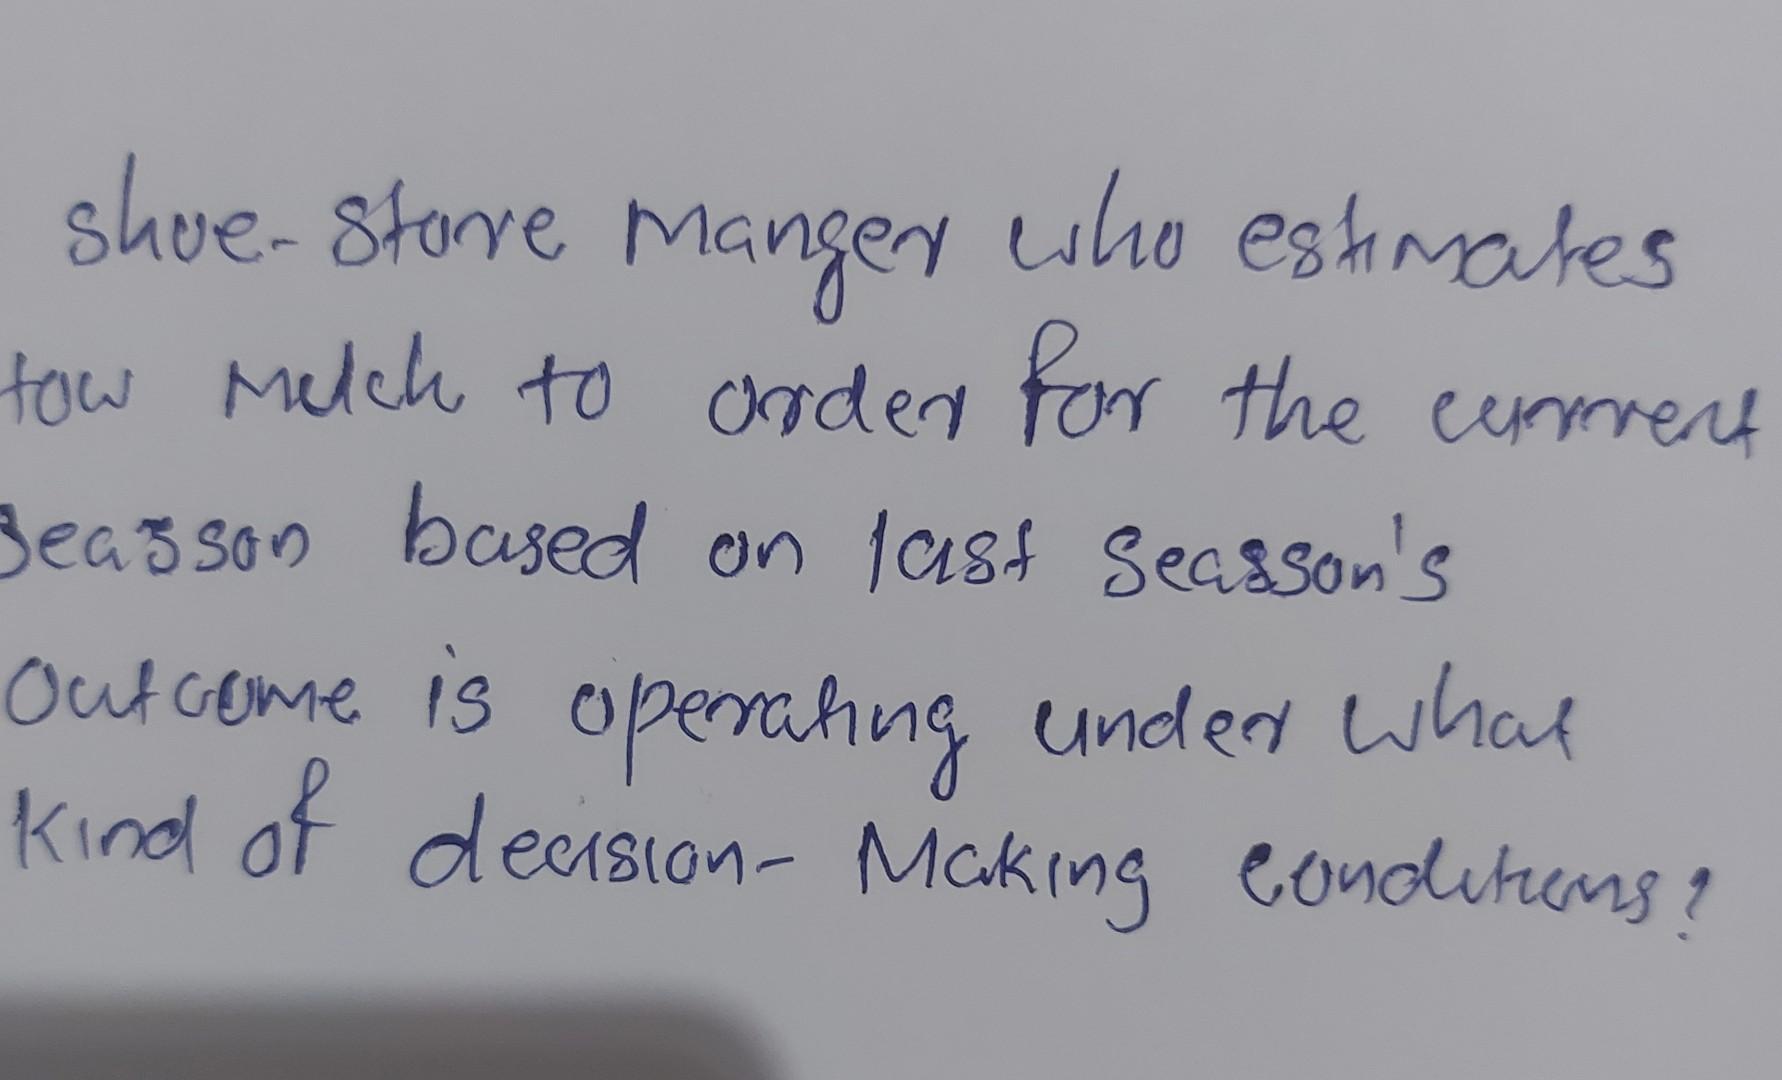 shoe-store manger who estimates
how much to order for the current
seasson based on last seasson's
outcome is operating under what
kind of decision-Making conditions?